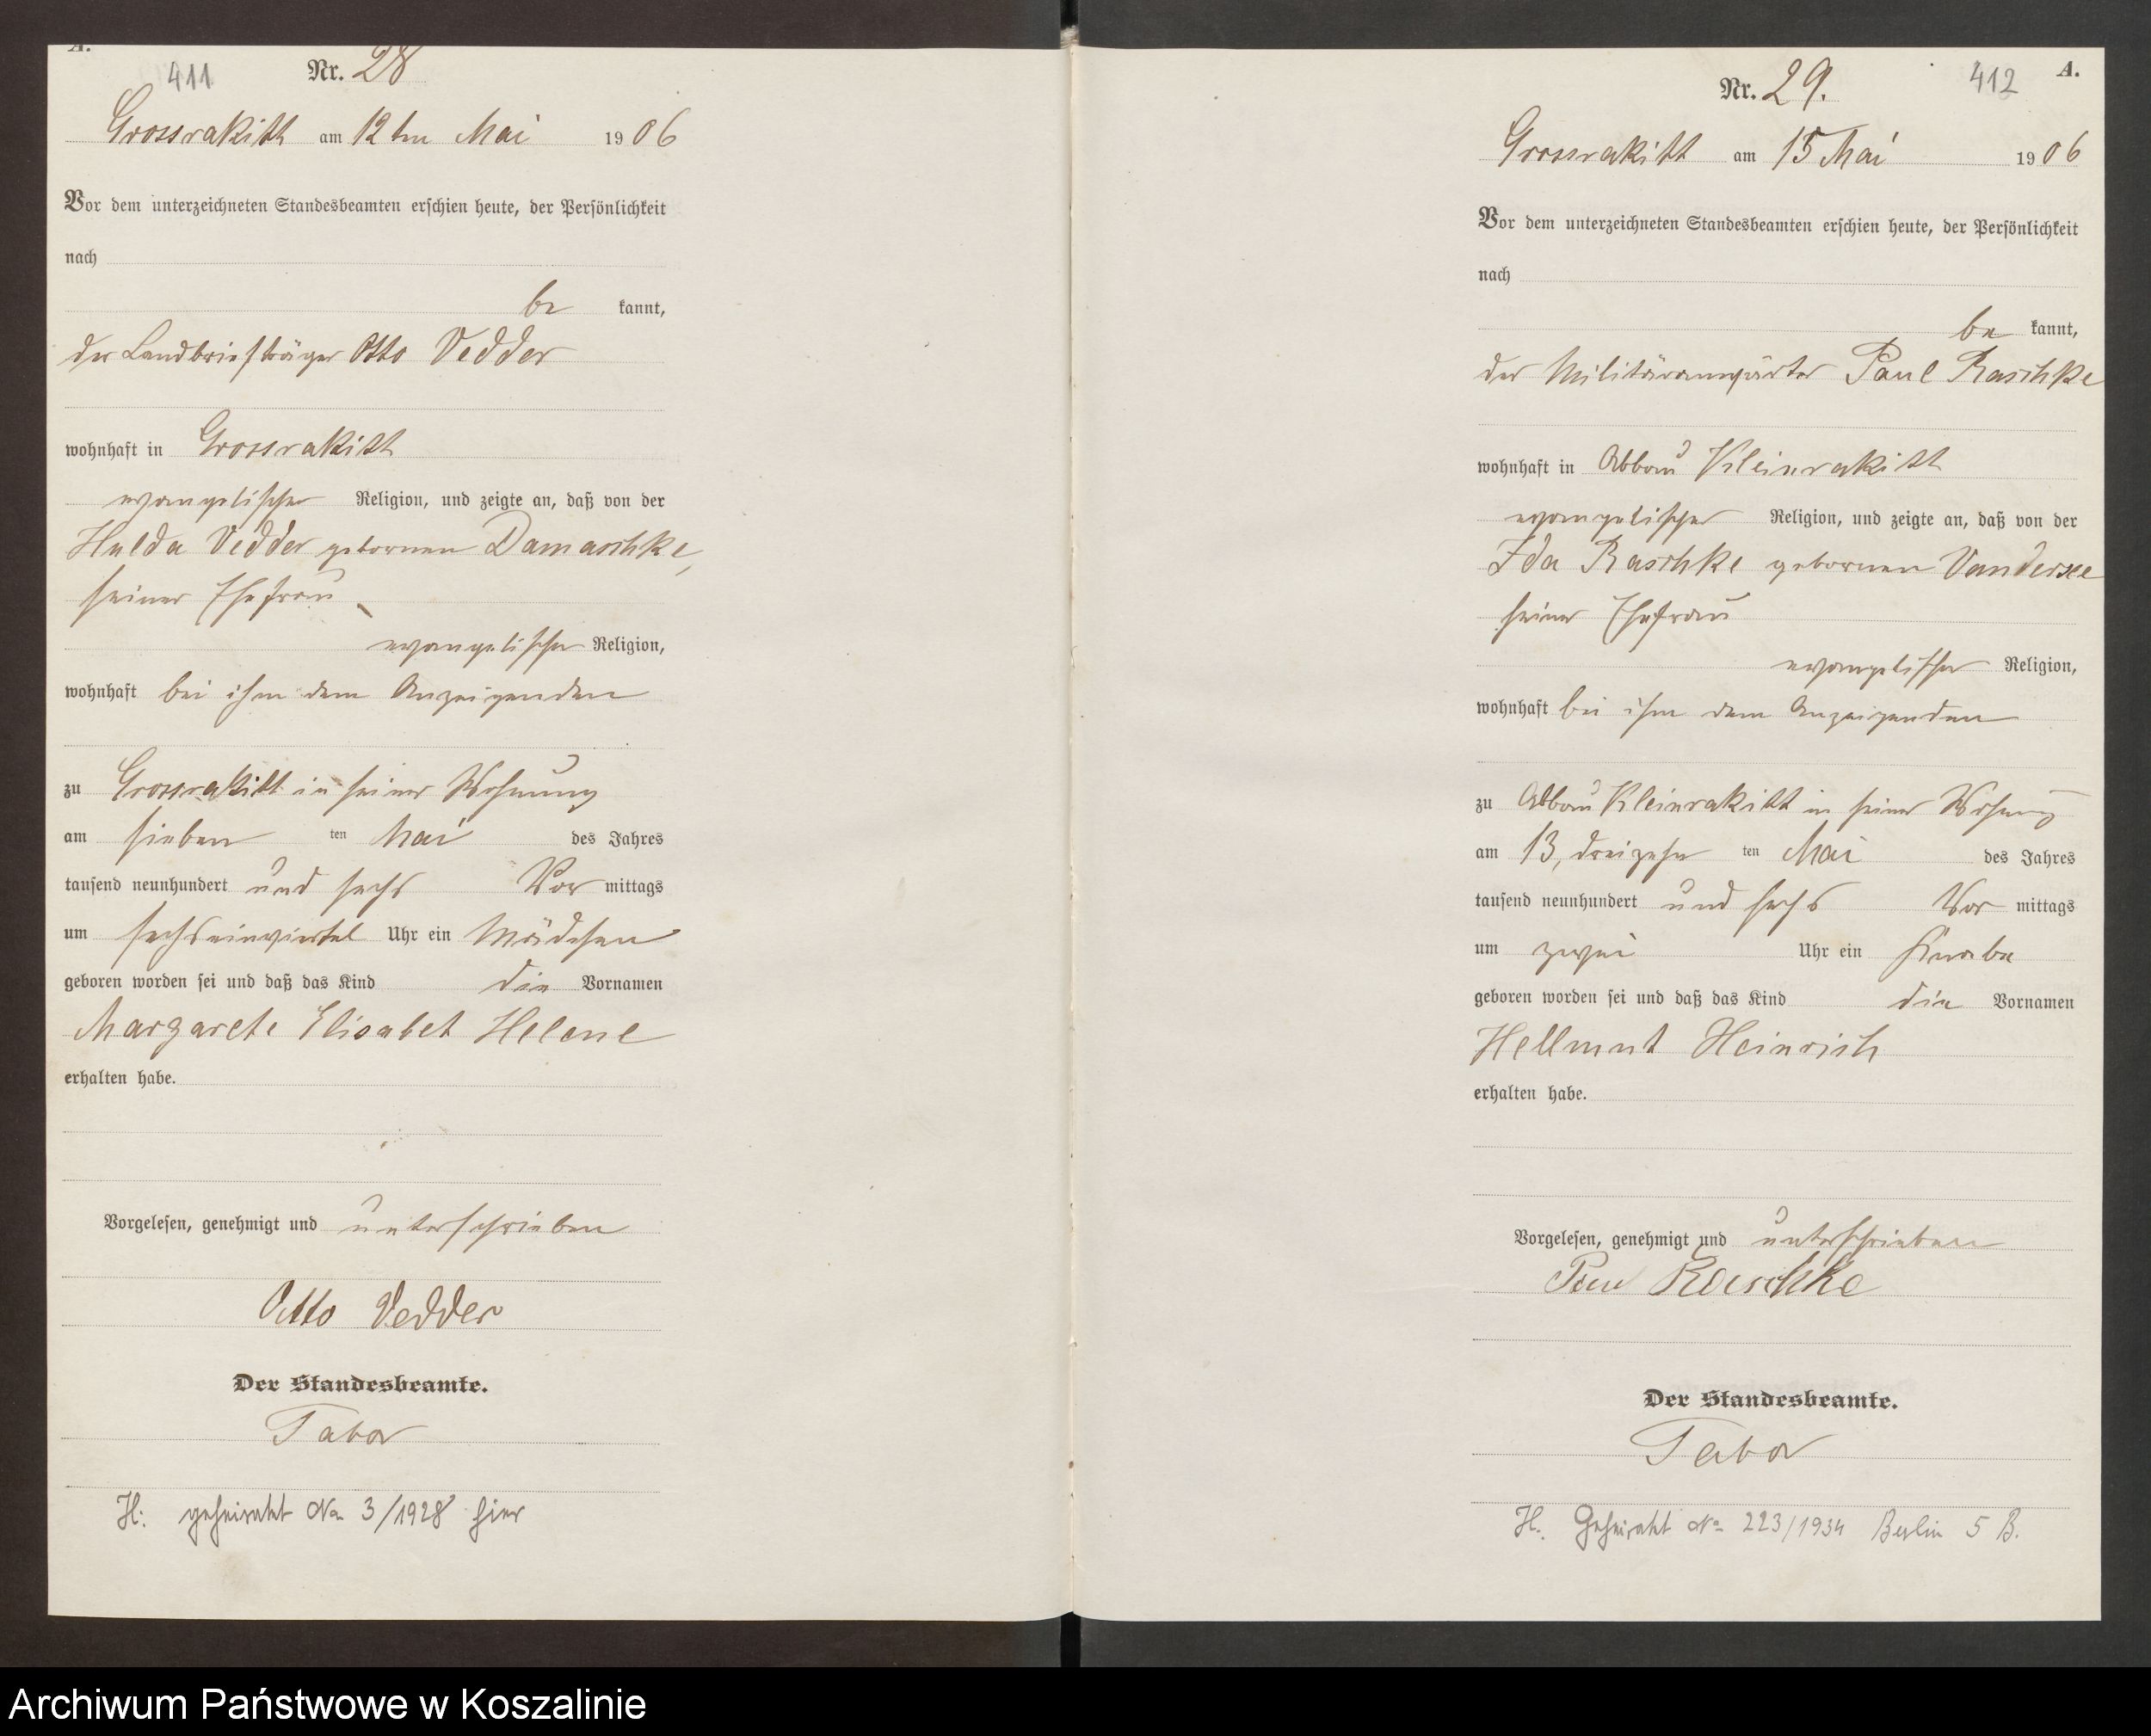 A.
411
Nr. 28
Grossrakitt am 12ten Mai 1906
Vor dem unterzeichneten Standesbeamten erschien heute, der Persönlichkeit
nach
be kannt,
der Landbriefträger Otto Vedder
wohnhaft in Grossrakitt
evangelischer Religion, und zeigte an, daß von der
Hulda Vedder gebornen Damaschke,
seiner Ehefrau
evangelischer Religion,
wohnhaft bei ihm dem Anzeigenden
zu Grossrakitt in seiner Wohnung
am sieben ten Mai des Jahres
tausend neunhundert und sechs Vor mittags
um sechseinviertel Uhr ein Mädchen
geboren worden sei und daß das Kind die Vornamen
Margarete Elisabet Helene
erhalten habe.
Vorgelesen, genehmigt und unterschrieben
Otto Vedder
Der Standesbeamte.
Tabor
H: geheiratet No 3/1928 hier
412
A.
Nr. 29.
Grossrakitt am 15 Mai 1906
Vor dem unterzeichneten Standesbeamten erschien heute, der Persönlichkeit
nach
be kannt,
der Militäranwärter Paul Raschke
wohnhaft in Abbau Kleinrakitt
evangelischer Religion, und zeigte an, daß von der
Ida Raschke gebornen Vandersee
seiner Ehefrau
evangelischer Religion,
wohnhaft bei ihm dem Anzeigenden
zu Abbau Kleinrakitt in seiner Wohnung
am 13, dreizehn ten Mai des Jahres
tausend neunhundert und sechs Vor mittags
um zwei Uhr ein Knabe
geboren worden sei und daß das Kind die Vornamen
Hellmut Heinrich
erhalten habe.
Vorgelesen, genehmigt und unterschrieben
Paul Raschke
Der Standesbeamte.
Tabor
H. Geheiratet No 223/1934 Berlin 5 B.
Archiwum Państwowe w Koszalinie